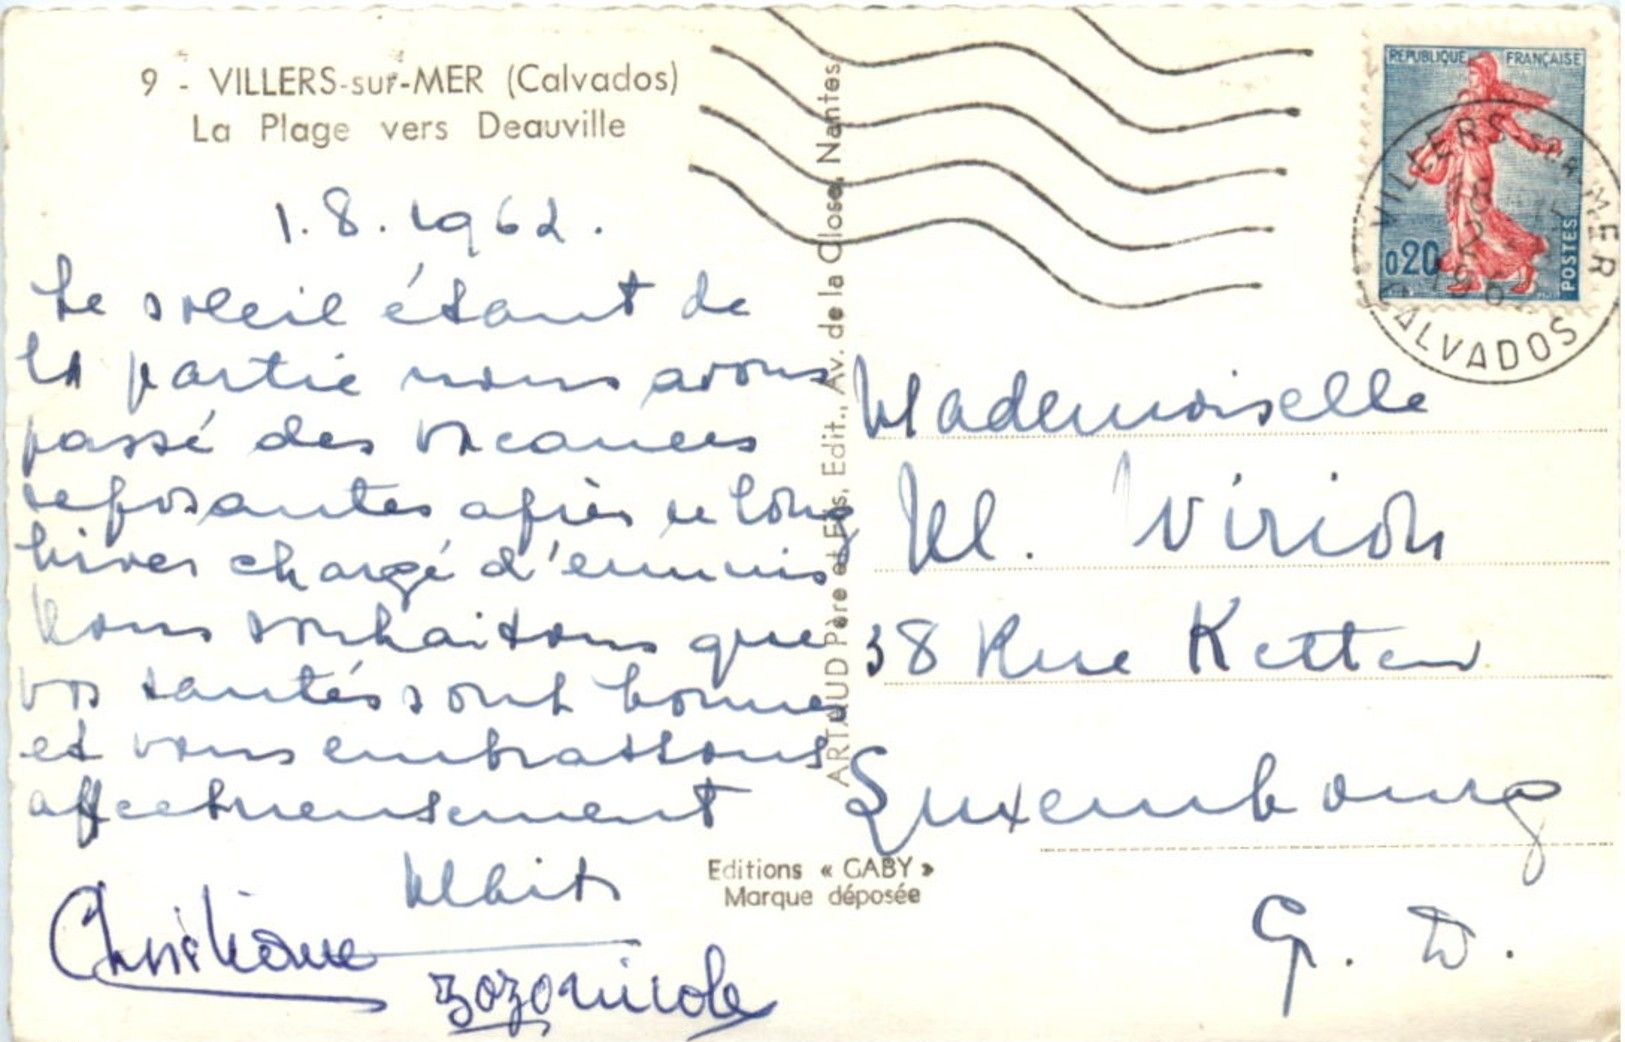 9 - VILLERS-sur-MER (Calvados)
La Plage vers Deauville
1.8.1962.
Le soleil étant de
la partie nous avons
passé des vacances
reposantes après ce long
hiver chargé d'ennuis
Nous souhaitons que
vos santés sont bonnes
et vous embrassons
affectueusement
Christiane
zozo nicole
ARTAUD Père et Fils, Edit., Av. de la Close, Nantes
Editions « GABY »
Marque déposée
REPUBLIQUE FRANÇAISE
0,20
POSTES
VILLERS-SUR-MER
CALVADOS
Mademoiselle
M. Virion
38 Rue Ketten
Luxembourg
G. D.